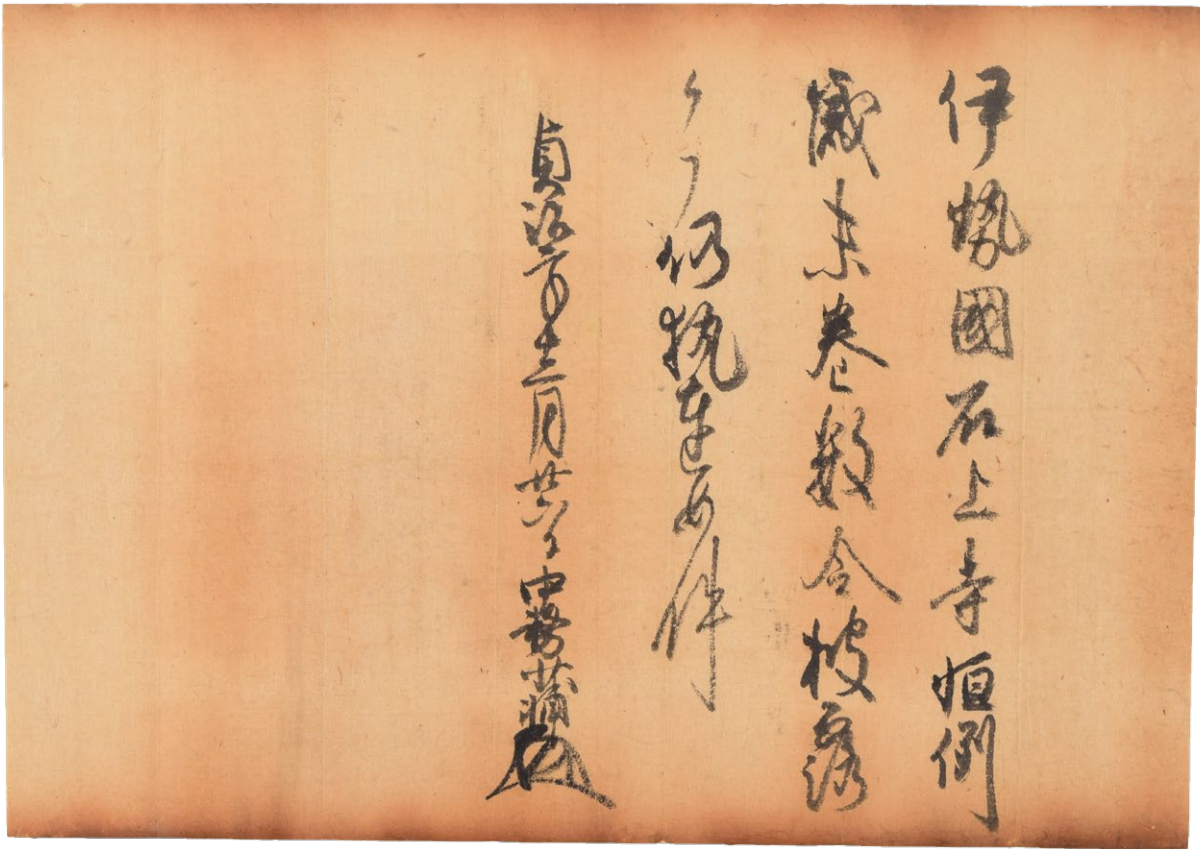 伊勢國石上寺恒例
歳末巻数令披露
候了仍執達如件
貞治二年十二月廿六日中務少輔